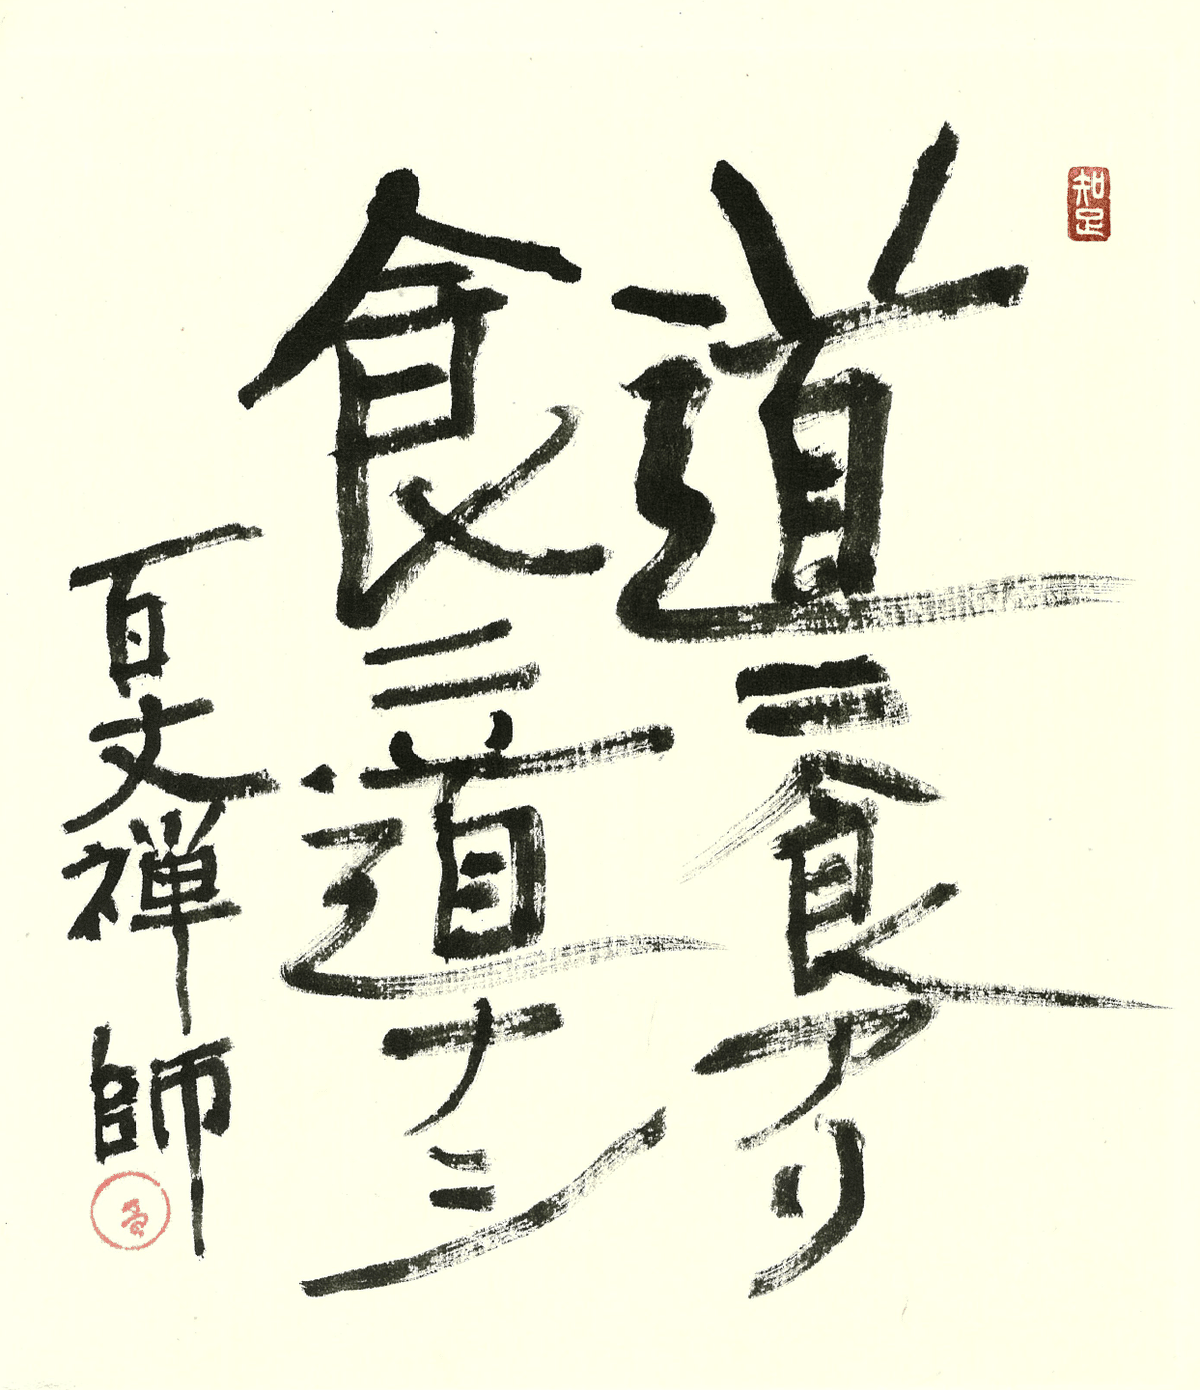 知足
道ニ食アリ
食ニ道ナシ
百丈禅師